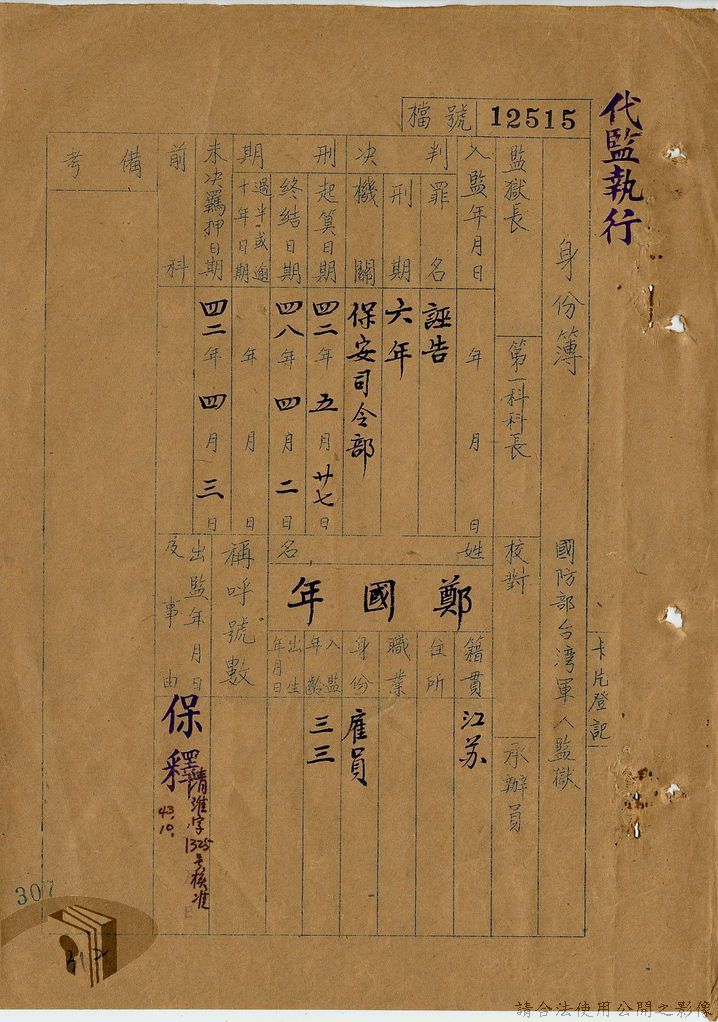 代監執行
檔號 12515
身份簿 國防部台湾軍人監獄
卡片登記
監獄長 第一科科長 校對 承辦員
入監年月日 年 月 日
判決
罪名 誣告
刑期 六年
機關 保安司令部
刑期
起算日期 四二年五月廿七日
終結日期 四八年四月二日
過半或逾十年日期 年 月 日
未決羈押日期 四二年四月三日
前科
備考
姓名 鄭國年
籍貫 江苏
住所
職業
身份 雇員
入監年齡 三三
出生年月日
稱呼號數
出監年月日及事由 保釋
清淮字1325号核准
43.10.
日
307
請合法使用公開之影像